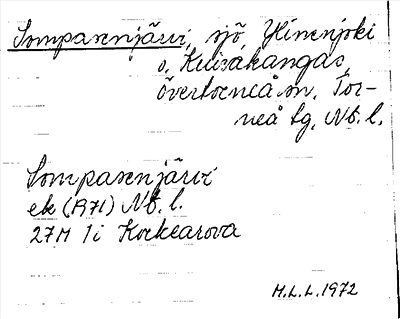 Sompasenjärvi, sjö, Ylinenjoki
o. Kuivakangas,
Övertorneå sn, Tor-
neå tg, Nb. l.
Sompasenjärvi
ek (1971) Nb. l.
27M 1i Korkearova
M.L.L. 1972